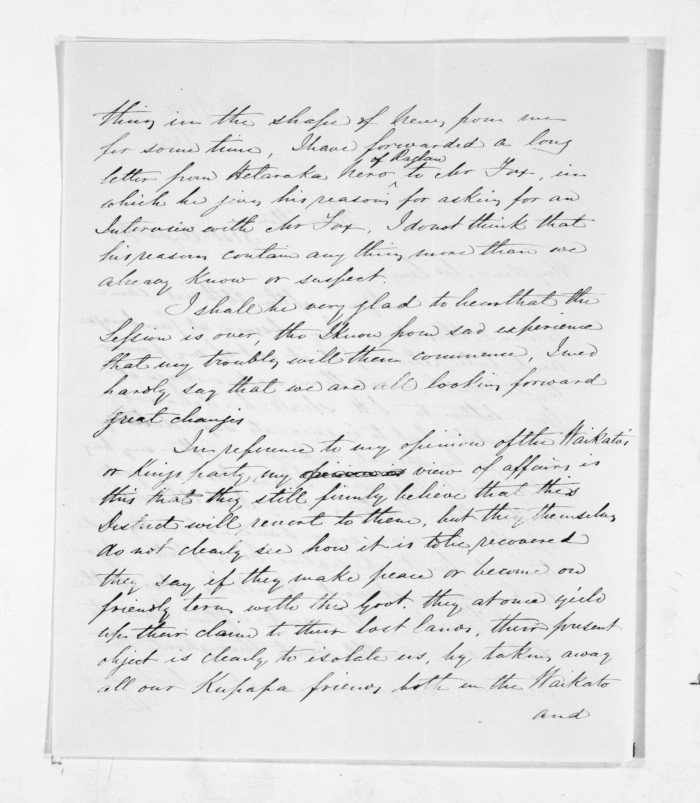 thing in the shape of News from me
for some time, I have forwarded a long
letter from Hetaraka Nero ^of Raglan to Mr Fox, in
which he gives his reasons for asking for an
Interview with Mr Fox, I do not think that
his reasons contain any thing more than we
already Know or suspect.
I shall be very glad to hear that the
Session is over, tho I know from sad experience
that my troubles will then commence, I need
hardly say that we are all looking forward
great changes
In reference to my opinion of the Waikato's
or Kings party, my opinion is view of affairs is
this that they still firmly believe that this
District will revert to them, but they themselves
do not clearly see how it is to be recovered
they say if they make peace or become on
friendly terms with the Govt. they at once yield
up their claim to their lost lands, their present
object is clearly to isolate us, by taking away
all our Kupapa friends both in the Waikato
and